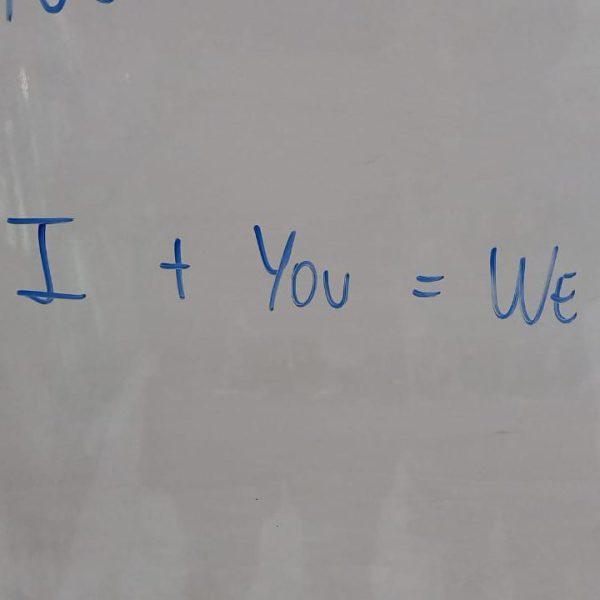 I + You = WE